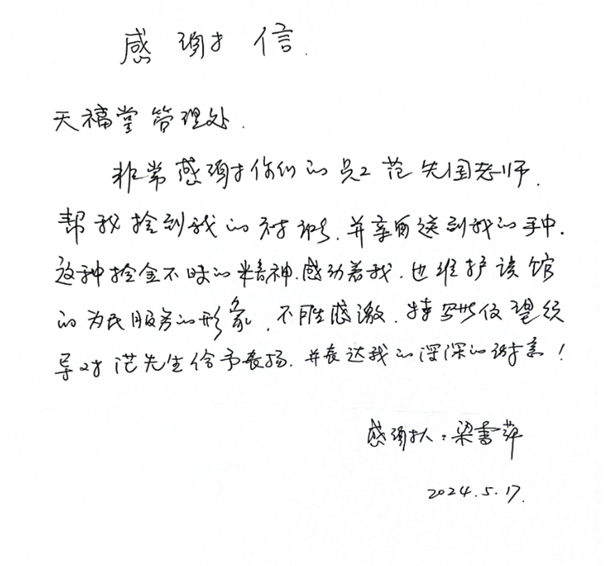 感谢信.
天福堂管理处.
非常感谢你们的员工范先国老师.
帮我捡到我的对讲,并亲自送到我的手中.
这种拾金不昧的精神.感动着我.也维护该馆
的为民服务的形象,不胜感激.特 望领
导对范先生给予表扬.并表达我的深深的谢意!
感谢人:梁书萍
2024.5.17.